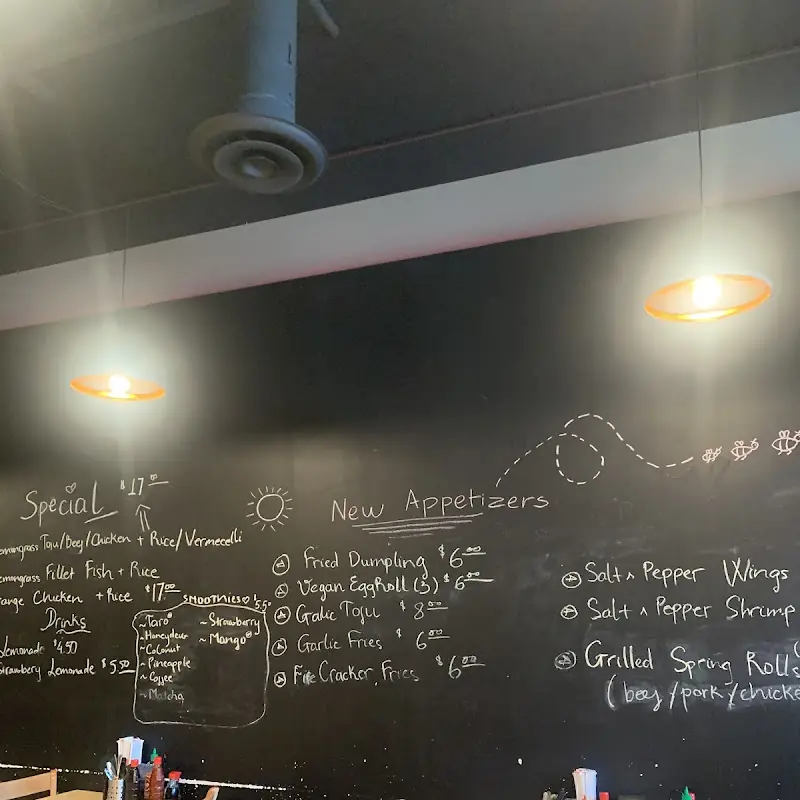 Special $17.00
emongrass Tofu/Beef/Chicken + Rice/Vermecelli
emongrass Fillet Fish + Rice
range Chicken + Rice $17.00
Drinks
Lemonade $4.50
Strawbery Lemonade $5.50
SMOOTHIES $5.50
~Taro
~Honeydew
~Coconut
~Pineapple
~Coffee
~Matcha
~Strawberry
~Mango
New Appetizers
Fried Dumpling $6.00
Vegan EggRoll (3) $6.00
Galic Tofu $8.00
Garlic Fries $6.00
FireCracker Fries $6.00
Salt n Pepper Wings
Salt n Pepper Shrimp
Grilled Spring Rolls
(beef/pork/chicke